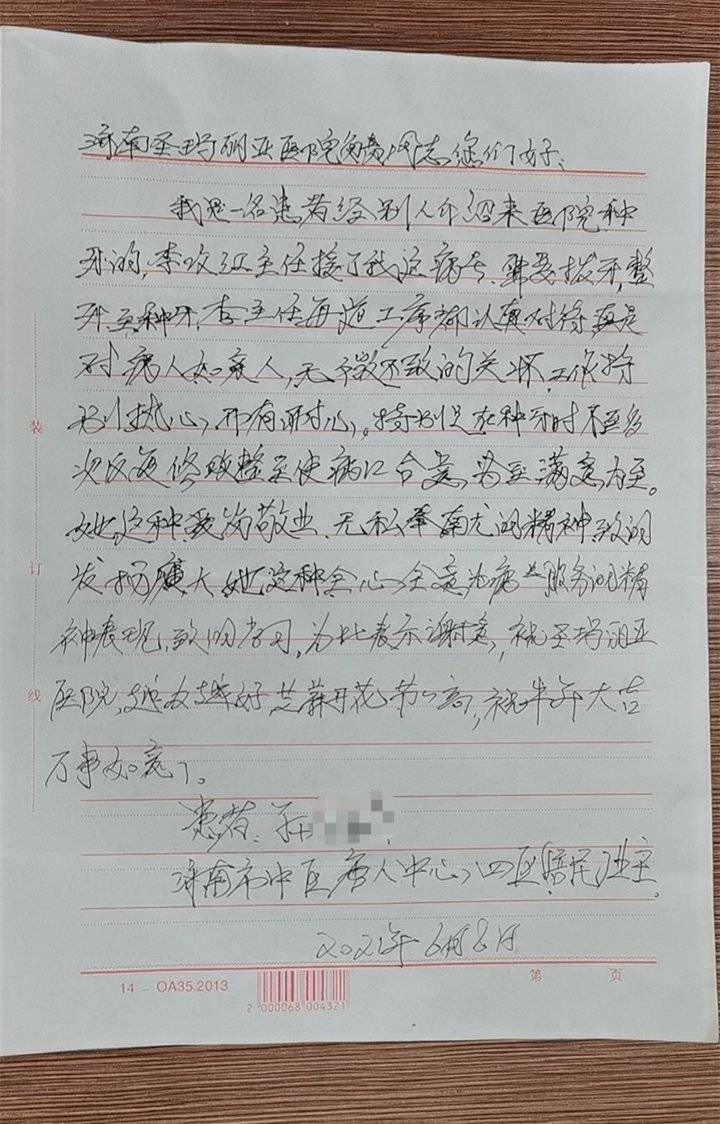 济南圣玛丽亚医院领同志您们好、
我是一名患者经别人介绍来医院种
牙的,李主任接了我这病号,拔牙,整
牙,种牙,李主任每道工序都认真对待真是
对病人如亲人,无微不致的关怀,工作特
别热心,有耐心。特别是在种牙时不至多
次反复修改整至使病口合适,为至满意为至。
她这种爱岗敬业、无私奉献的精神
发扬广大她这种全心全意为病人服务的精
神表现,学习,为此表示谢意,祝圣玛丽亚
医院,越办越好,芝麻开花节节高,祝牛年大吉
万事如意了。
患者:
济南市中区中心八四区业主。
2021年6月8日
14 - OA35.2013
2 000068 004321
第 页
装
订
线